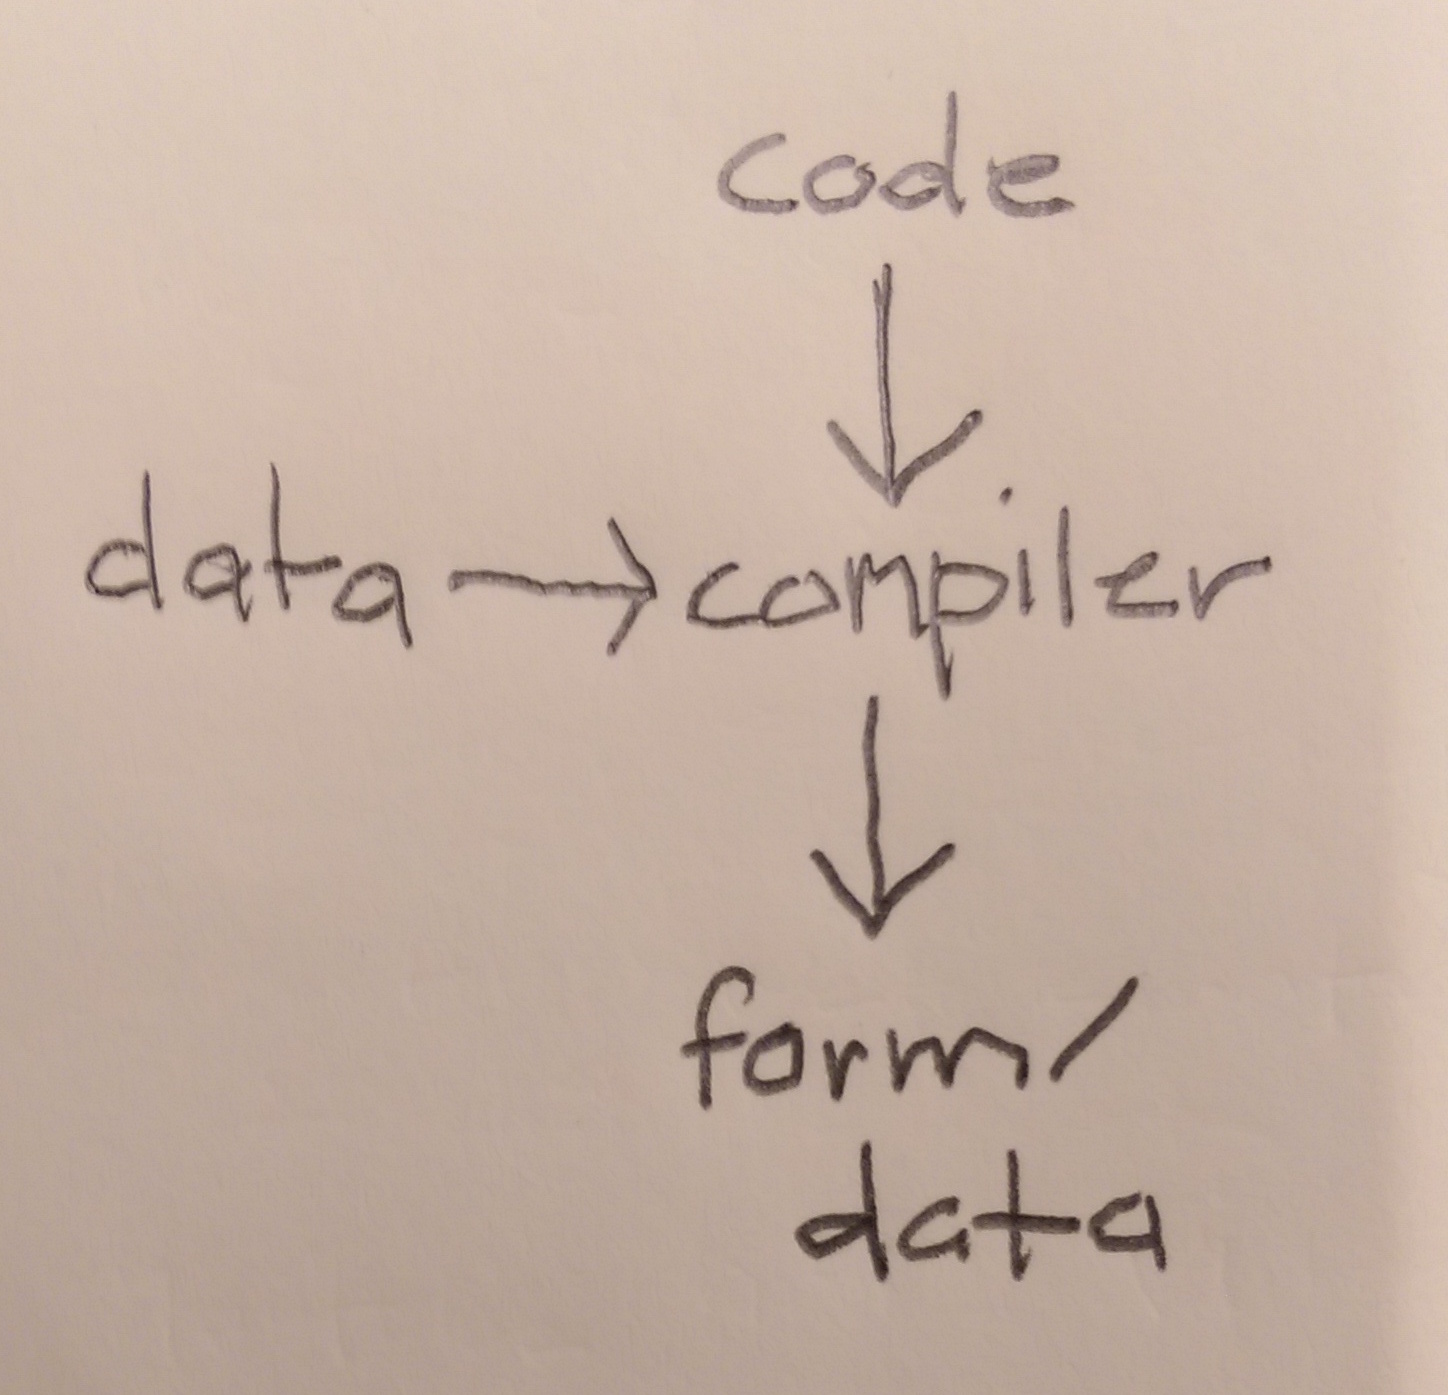 code
data → compiler
form/
data